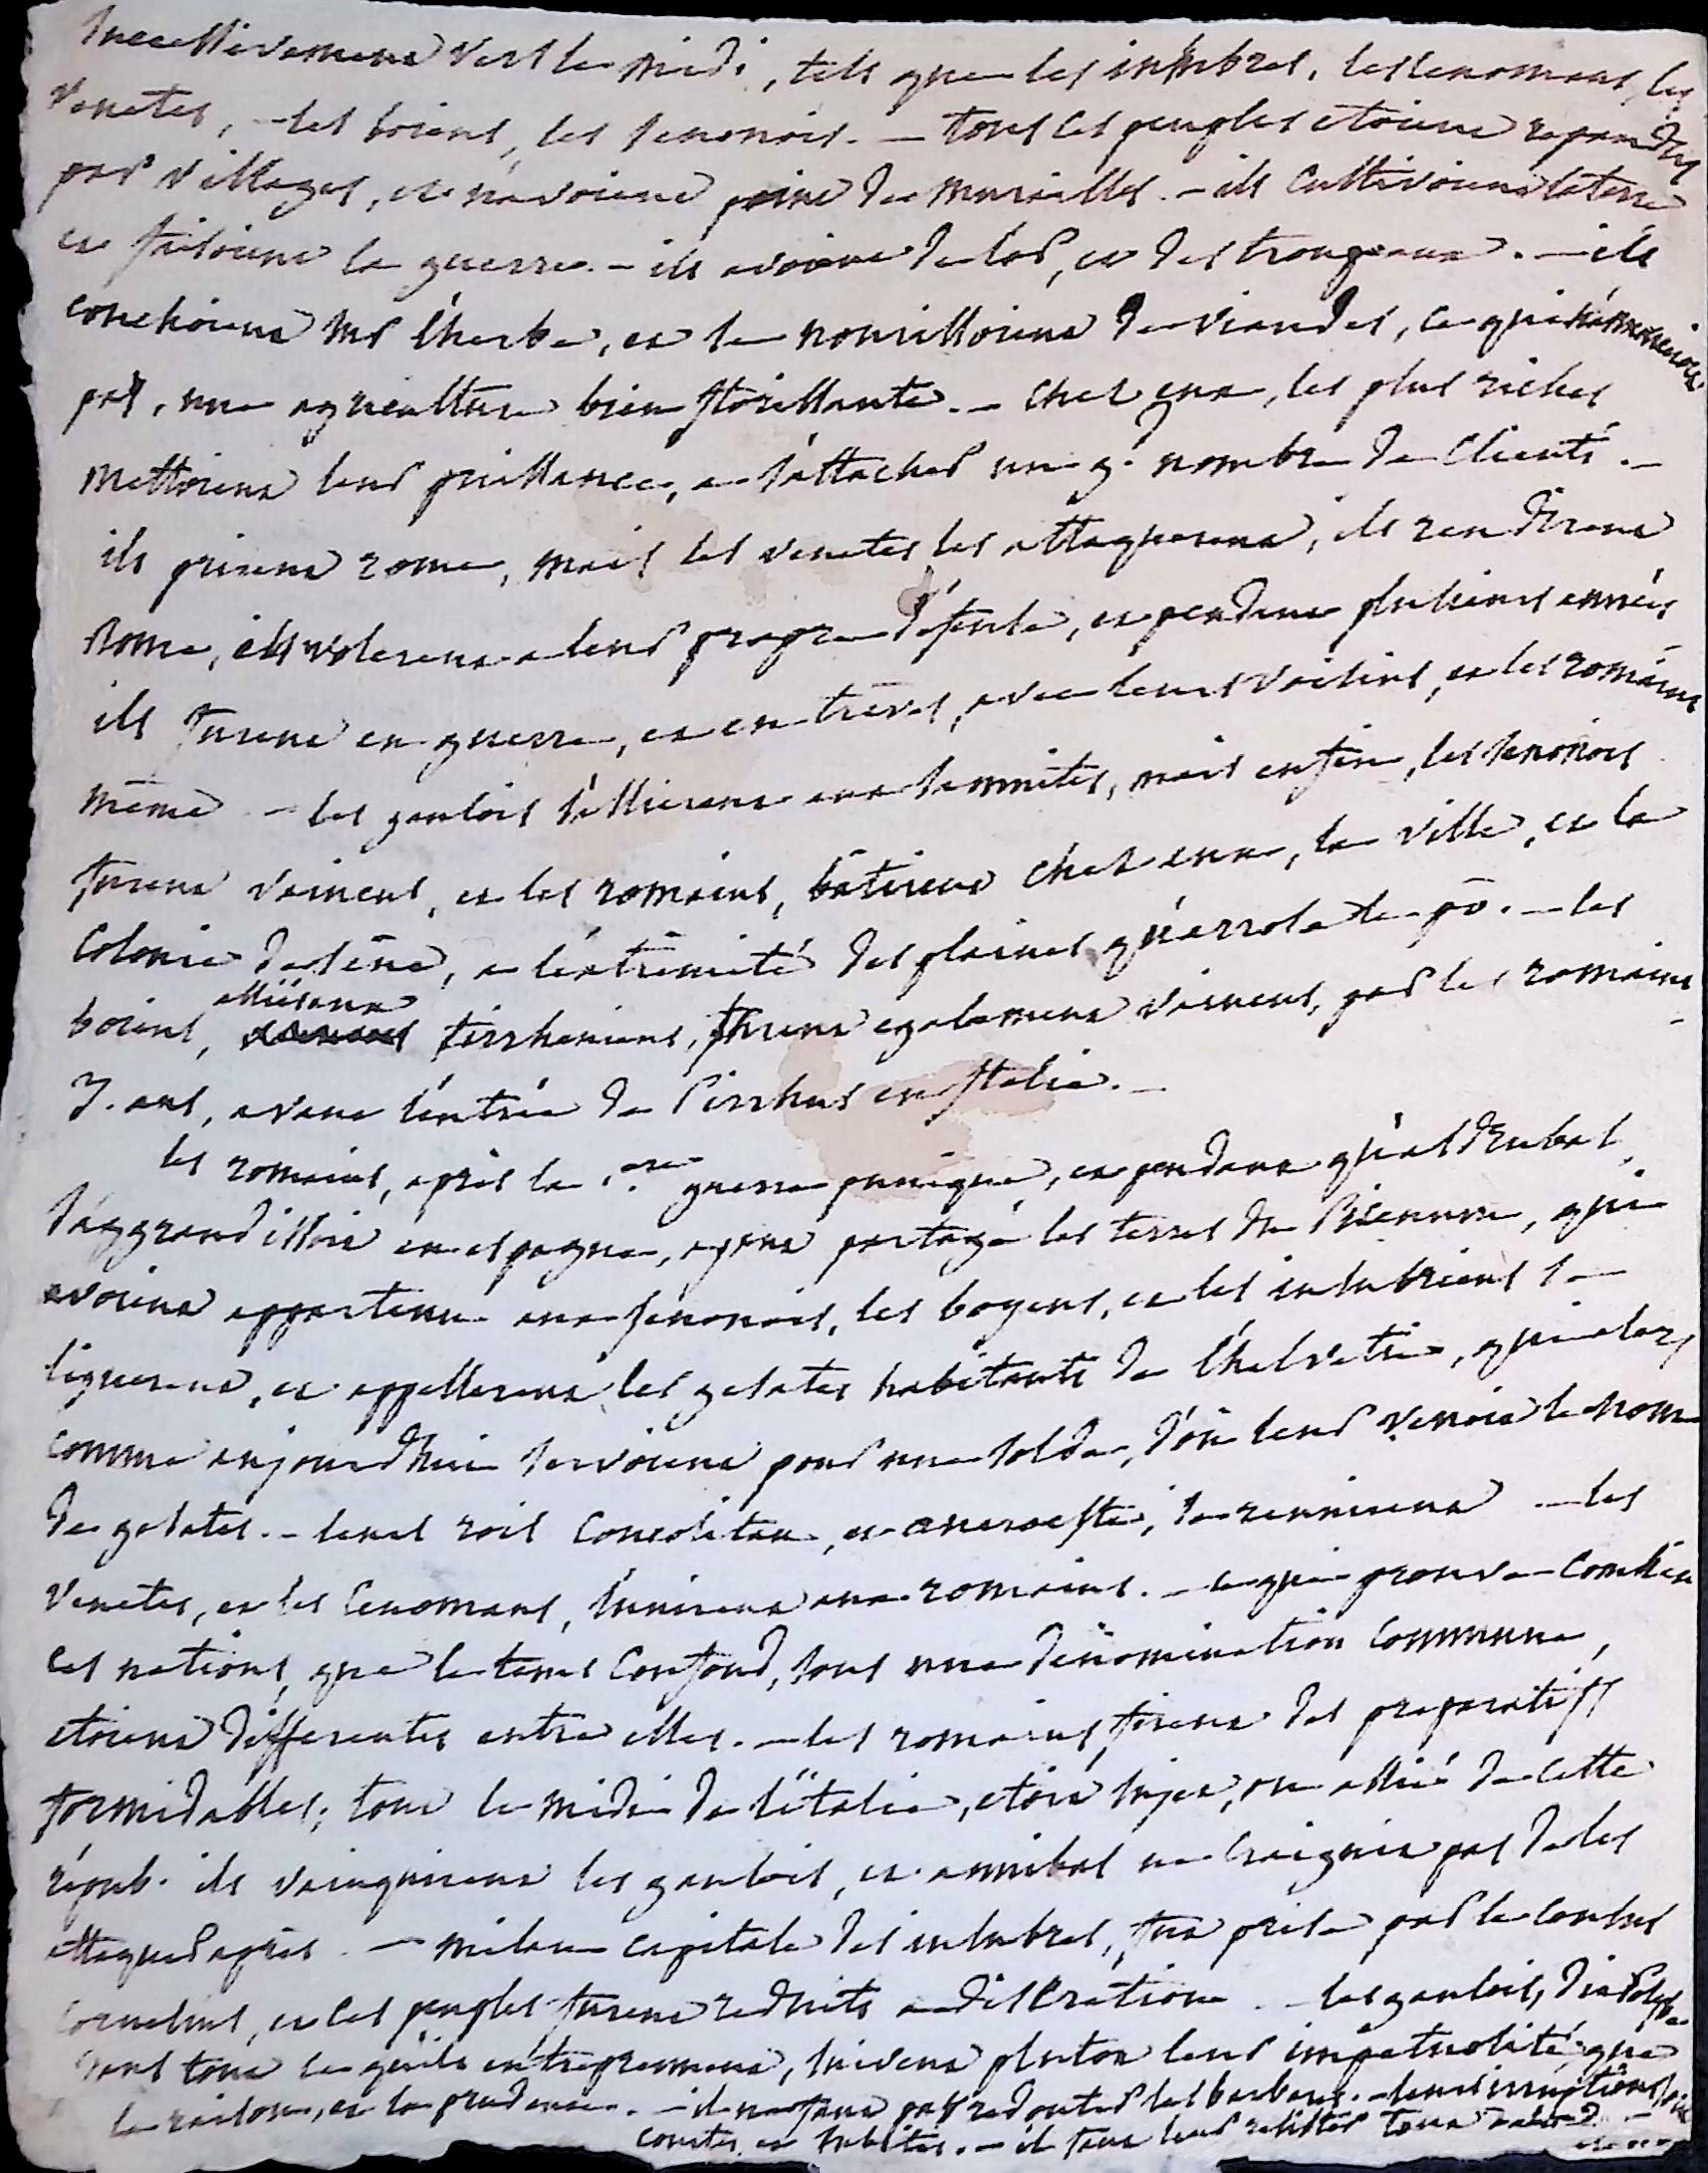 successivement vers le midi, tels que les insubres, les cenomans, les
venetes, - les boiens, les senonois. - tous ces peuples etoient repandus
par villages, et n'avoient point de murailles. - ils cultivoient la terre
et faisoient la guerre. - ils avoient de l'or, et des troupeaux. - ils
couchoient sur l'herbe, et se nourissoient de viandes, ce qui n'announçoit
pas, une agriculture bien florissante. - chez eux, les plus riches
mettoient leur puissance, a s'attacher un gd. nombre de clients. -
ils prirent rome, mais les venetes les attaquerent, ils rendirent
Rome, ils volerent a leur propre défense, et pendant plusieurs années
ils furent en guerre, et en treves, avec leurs voisins, et les romains
même - les gaulois s'allierent aux samnites, mais enfin, les senonois
furent vaincus, et les romains, bâtirent chez eux, la ville, et la
colonie de séna, a l'extrémité des plaines qu'arrose le pô. - les
boiens, alliérent tirrheniens, furent egalement vaincus, par les romains
3. ans, avant l'entrée de Pirrhus en Italie. -
les romains, après la 1.ere guerre punique, et pendant qu'asdrubal,
s'aggrandissoit en espagne, ayant partagé les terres du Picenum, qui
avoient appartenu aux senonois, les boyens, et les insubriens se
liguerent, et appellerent les gesates habitants de l'helvetie, qui alors
comme aujourdhui servoient pour une solde, d'où leur venoit le nom
de gesates. - leurs rois concolitan, et aneroeste, se reunirent - les
venetes, et les cenomans, s'unirent aux romains. - ce qui prouve combien
ces nations, que le tems confond, sous une dénomination commune,
etoient differentes entre elles. - les romains, firent des preparatifs
formidables; tout le midi de l'italie, etoit sujet, ou allié de cette
répub. ils vainquirent les gaulois, et annibal ne craignit pas de les
attaquer après. - milan capitale des insubres, fut prise par le consul
cornelius, et ces peuples furent reduits a discretion. - les gaulois, dit Polybe
dans tout ce qu'ils entreprennent, suivent plutot leur impétuosité, que
la raison, et la prudence. - il ne faut pas redouter les barbares. - leurs irruptions sont
courtes, et subites. - il faut leur resister